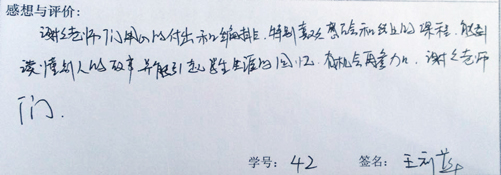 感想与评价:
谢谢老师们用心的付出和编排. 特别喜欢 的课程. 能够
读懂别人的故事并能引起 生涯的回忆. 有机会再参加. 谢谢老师
们.
学号: 42 签名: 王利